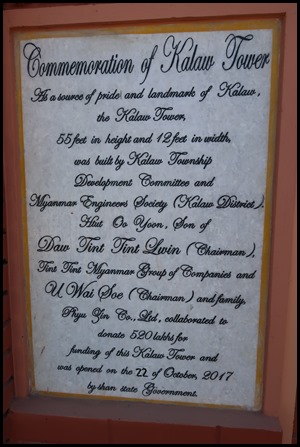 Commemoration of Kalaw Tower
As a source of pride and landmark of Kalaw,
the Kalaw Tower,
55 feet in height and 12 feet in width,
was built by Kalaw Township
Development Committee and
Myanmar Engineers Society (Kalaw District).
Htut Oo Yoon, Son of
Daw Tint Tint Lwin (Chairman),
Tint Tint Myanmar Group of Companies and
U Wai Soe (Chairman) and family,
Phyu Yin Co., Ltd, collaborated to
donate 520 lakhs for
funding of this Kalaw Tower and
was opened on the 22 of October, 2017
by shan state Government.